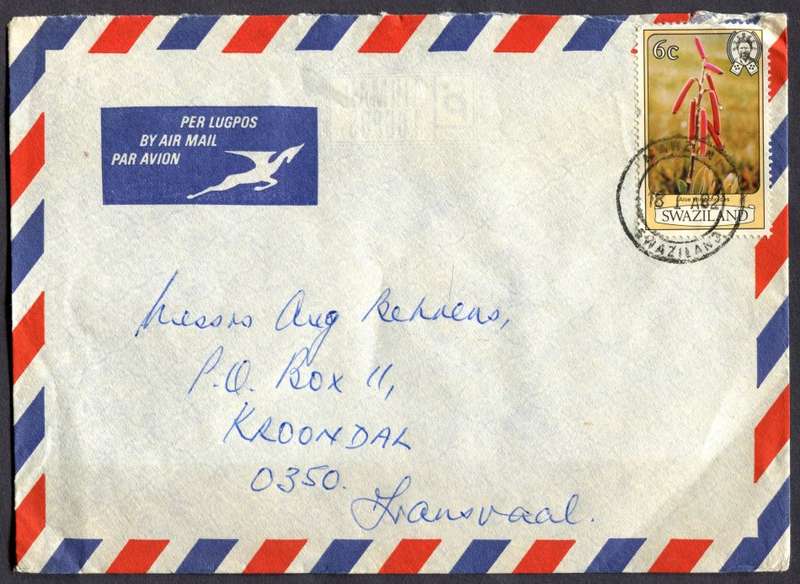 PER LUGPOS
BY AIR MAIL
PAR AVION
6c
SWAZILAND
SWAZILAND
Messrs Aug Behrens,
P.O. Box 11,
KROONDAL
0350.
Transvaal.